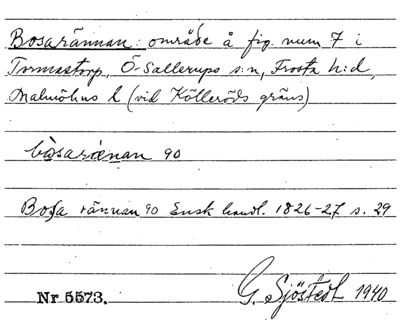 Bosarännan: område å fig. num 7 i
Tormastorp, Ö-Sallerups s:n, Frosta h:d,
Malmöhus l (vid Kölleröds gräns)
bòsaræ̀nan 90
Bosa rännan 90 Ensk handl. 1826-27 s. 29
Nr 5573.
G. Sjöstedt 1940